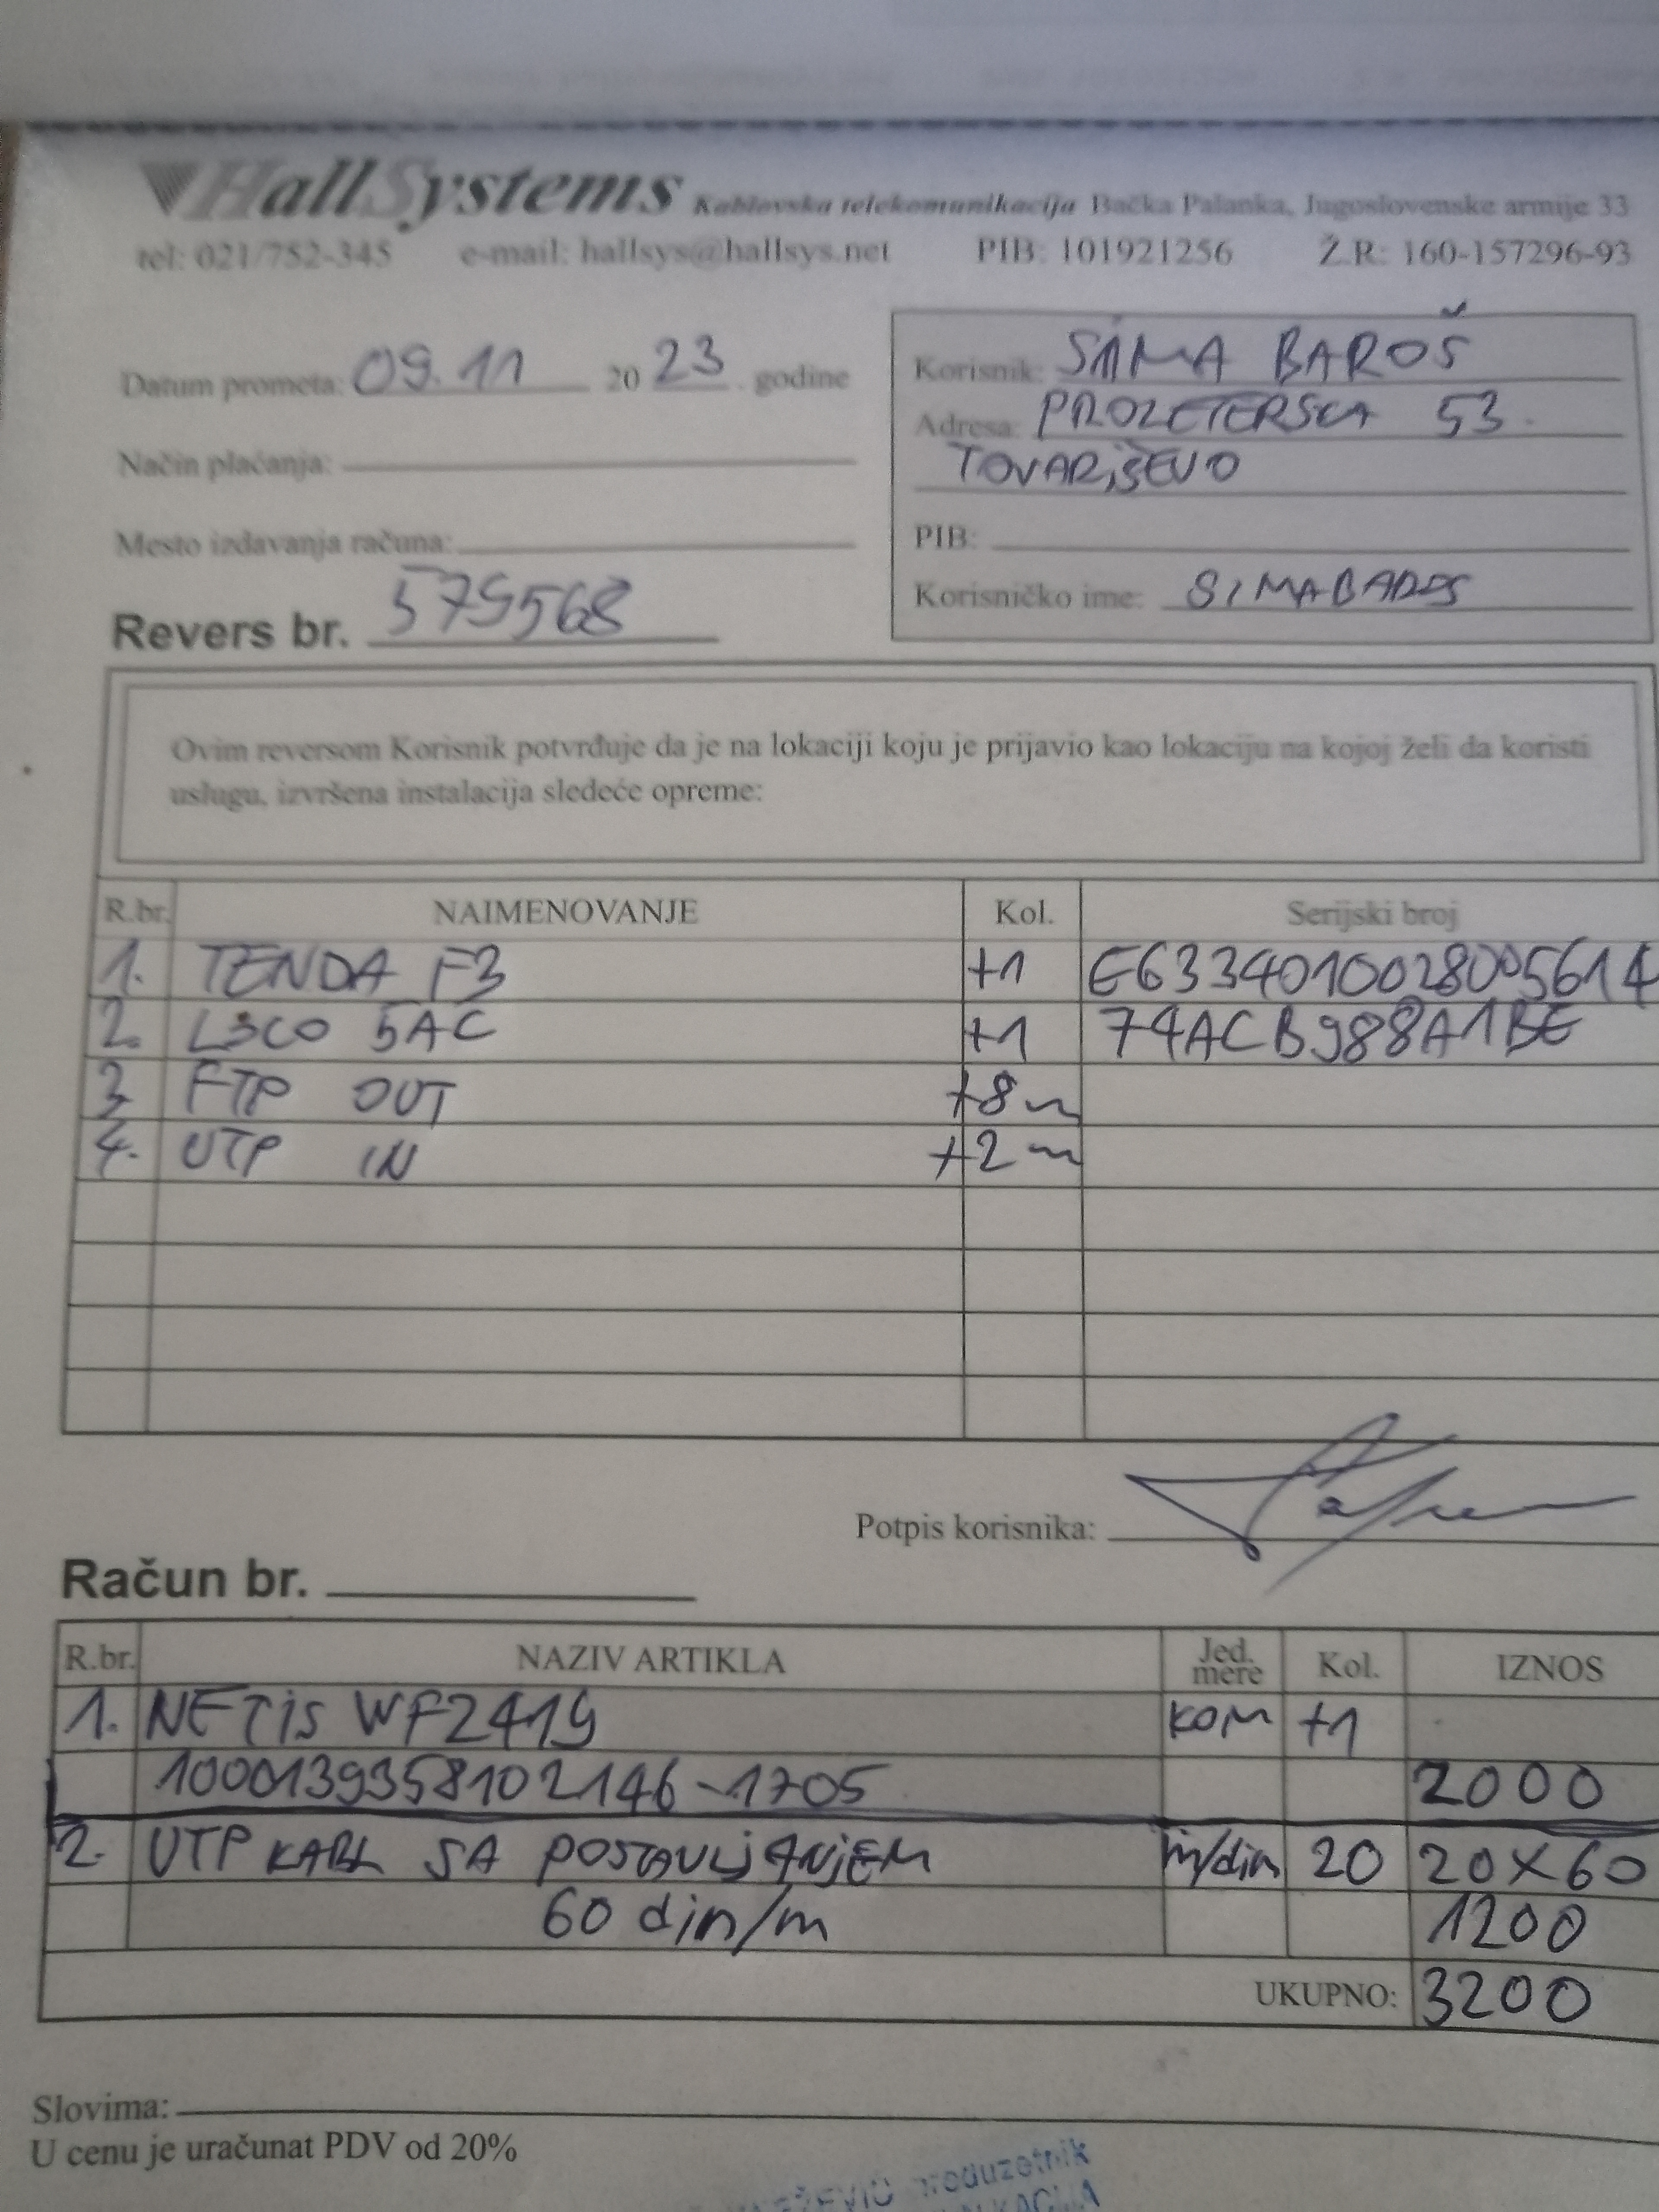 HallSystems Kablovska telekomunikacija Bačka Palanka, Jugoslovenske armije 33
tel: 021/752-345 e-mail: hallsys@hallsys.net PIB: 101921256 Ž.R: 160-157296-93
Datum prometa: 09.11 2023. godine
Način plaćanja:
Mesto izdavanja računa:
Revers br. 579568
Korisnik: SIMA BAROŠ
Adresa: PROLETERSKA 53.
TOVARiŠEVO
PIB:
Korisničko ime: SIMABAROS
Ovim reversom Korisnik potvrđuje da je na lokaciji koju je prijavio kao lokaciju na kojoj želi da koristi
uslugu, izvršena instalacija sledeće opreme:
R.br. NAIMENOVANJE Kol. Serijski broj
1. TENDA F3 +1 E6334010028005614
2. L3CO 5AC +1 74ACB988A1BE
3. FTP OUT +8m
4. UTP IN +2m
Potpis korisnika:
Račun br.
R.br. NAZIV ARTIKLA Jed. mere Kol. IZNOS
1. NETiS WF2419 KOM +1
1000139358102146-1705 2000
2. UTP KABL SA POSTAVLjANjEM m/din 20 20X60
60 din/m 1200
UKUPNO: 3200
Slovima:
U cenu je uračunat PDV od 20%
preduzetnik